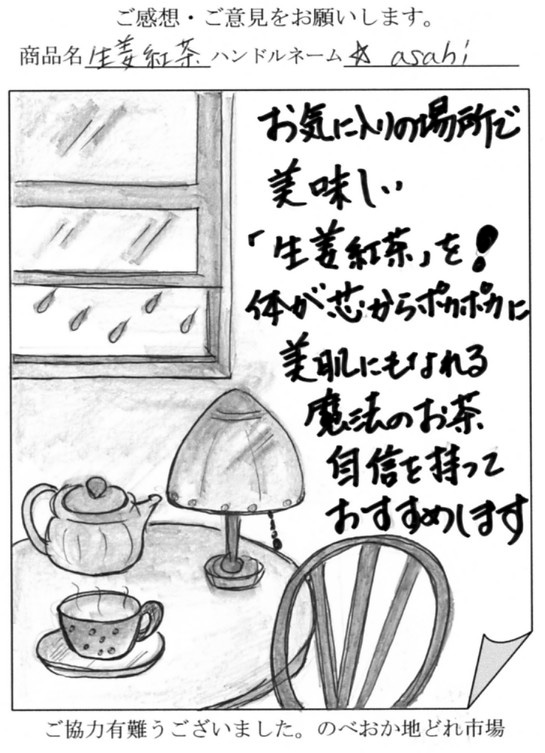 ご感想・ご意見をお願いします。
商品名 生姜紅茶 ハンドルネーム ☆ asahi
お気に入りの場所で
美味しい
「生姜紅茶」を!
体が芯からポカポカに
美肌にもなれる
魔法のお茶
自信を持って
おすすめします
ご協力有難うございました。のべおか地どれ市場